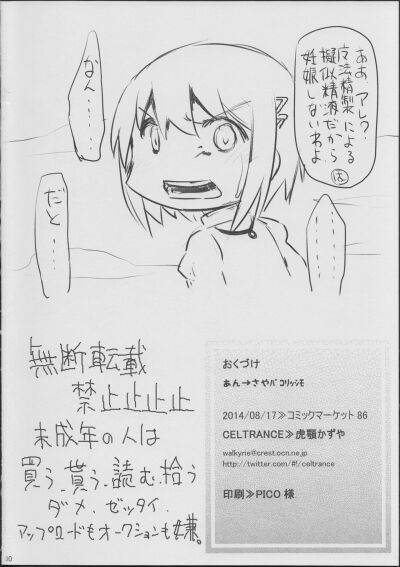 ああ、アレ？
魔法精製による
擬似精液だから
妊娠しないわよ
なん……
だと…
………
無断転載
禁止止止止
未成年の人は
買う、貰う、読む、拾う
ダメ、ゼッタイ、
アップロードもオークションも嫌。
おくづけ
あん→さやバコリッシモ
2014/08/17≫コミックマーケット 86
CELTRANCE≫虎顎かずや
walkyrie@crest.ocn.ne.jp
http://twitter.com/#!/celtrance
印刷≫PICO 様